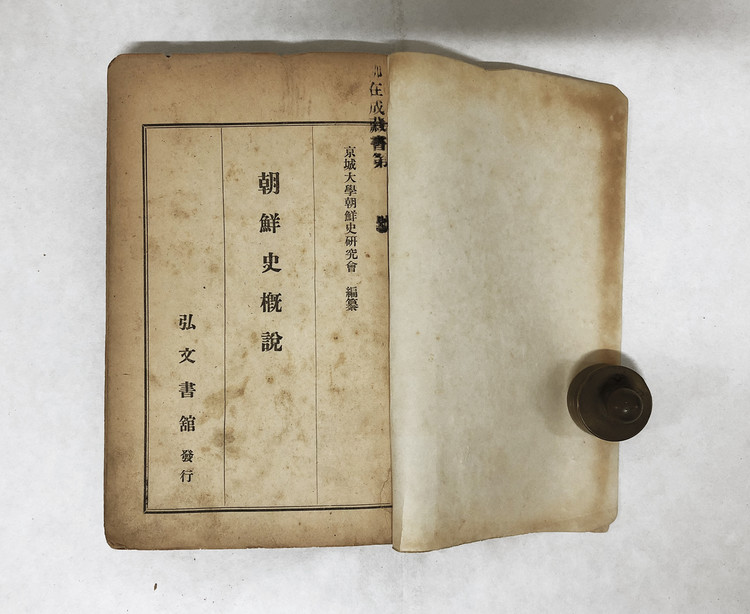 在成藏書第 號
京城大學朝鮮史硏究會 編纂
朝鮮史槪說
弘文書館 發行